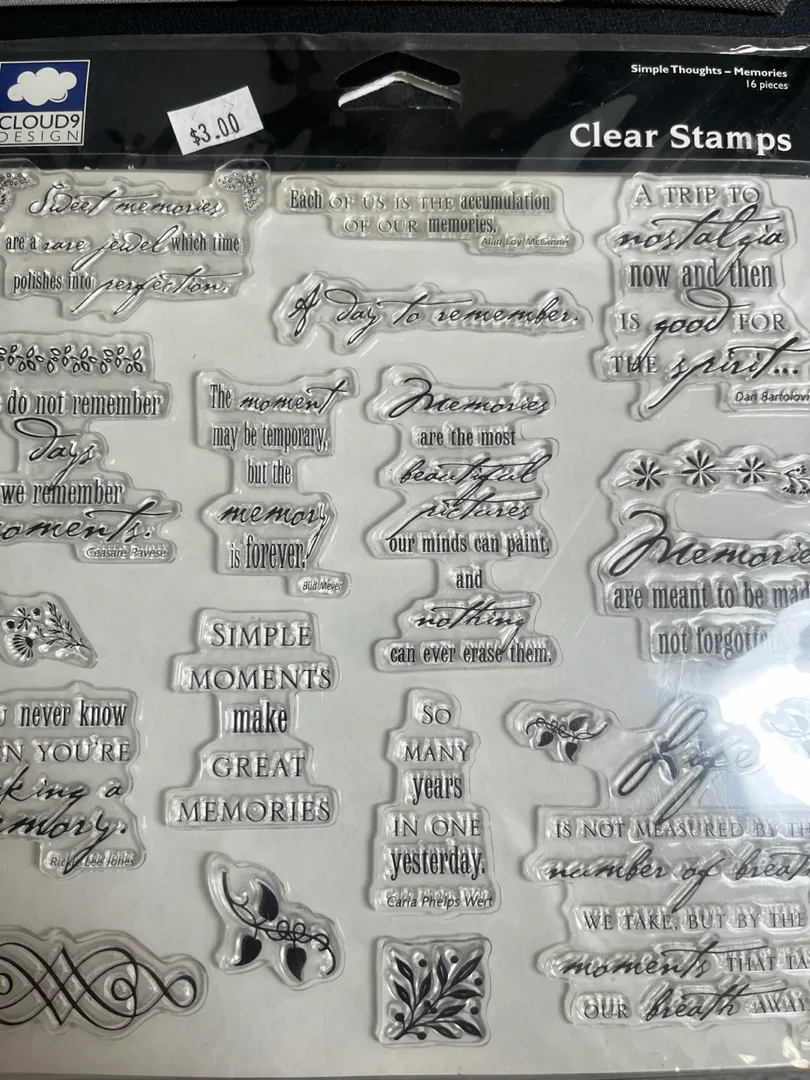 Simple Thoughts – Memories
16 pieces
CLOUD9
DESIGN
$3.00
Clear Stamps
Sweet memories
are a rare jewel which time
polishes into perfection.
Each OF US IS THE accumulation
OF OUR memories.
Alan Loy McGinnis
A TRIP TO
nostalgia
now and then
IS good FOR
THE spirit...
Dan Bartolovi
A day to remember.
do not remember
days
we remember
oments.
Ceasare Pavese
The moment
may be temporary,
but the
memory
is forever!
Bud Meyer
Memories
are the most
beautiful
pictures
our minds can paint,
and
nothing
can ever erase them.
Memorie
are meant to be mad
not forgotte
SIMPLE
MOMENTS
make
GREAT
MEMORIES
never know
N YOU'RE
king a
emory.
Rickie Lee Jones
SO
MANY
years
IN ONE
yesterday.
Carla Phelps Wert
Life
IS NOT MEASURED BY TH
number of breat
WE TAKE, BUT BY THE
moments THAT TA
OUR breath AWAY